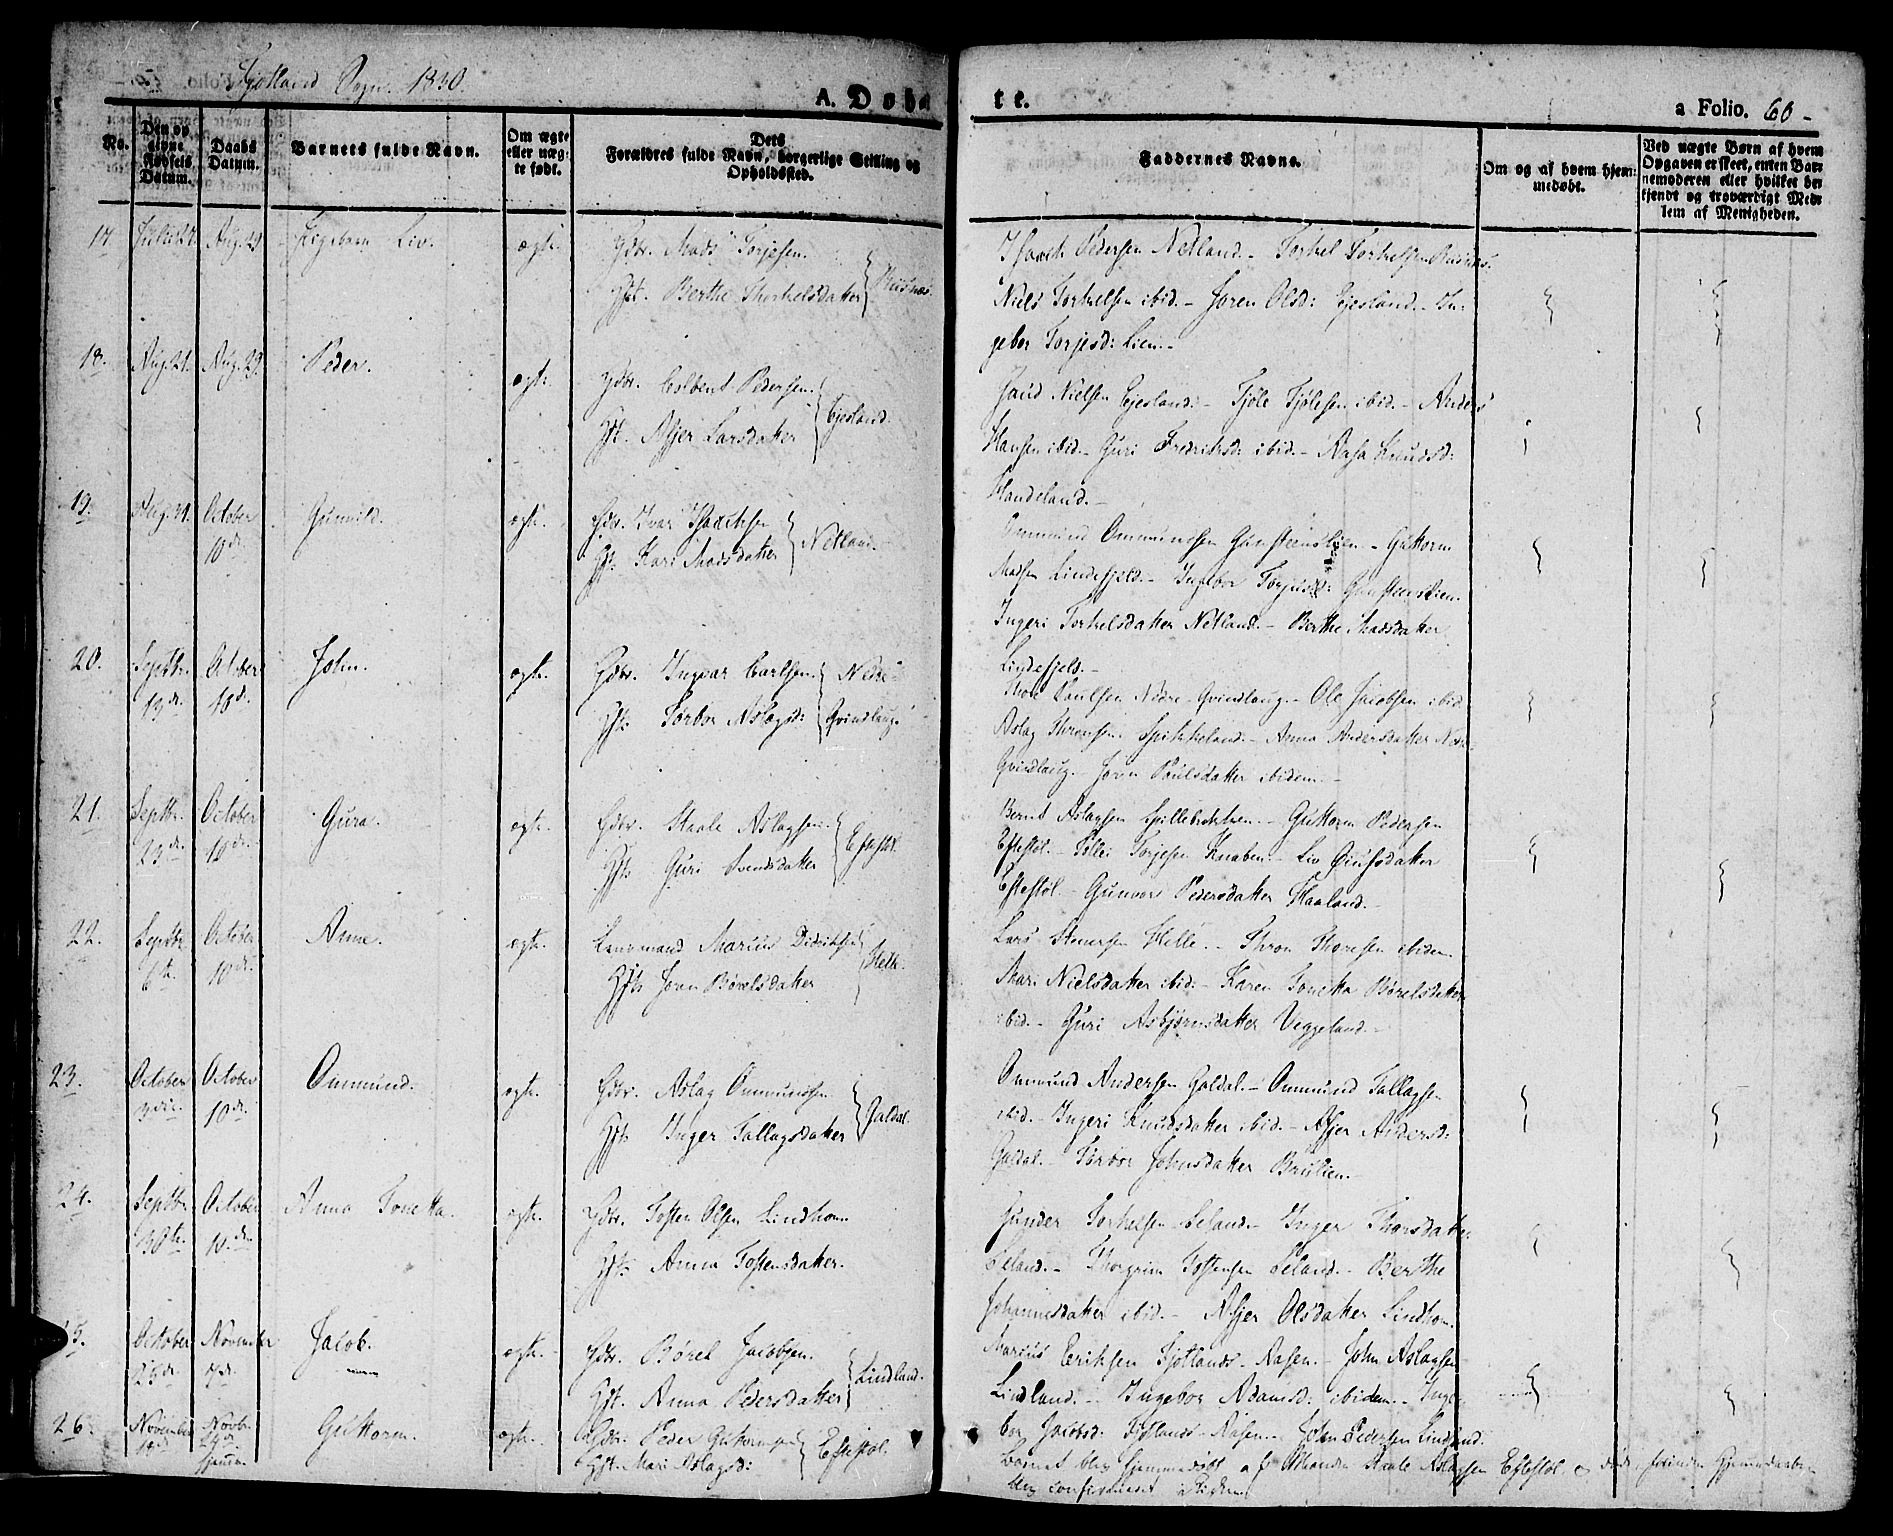 Fjotland Sogn. 1830.
A. Døbte.
a Folio. 60-
No.
Den opgivne Fødsels Datum.
Daabs Datum.
Barnets fulde Navn.
Om ægte eller uægte født.
Dets Forældres fulde Navn, borgerlige Stilling og Opholdssted.
Faddernes Navne.
Om og af hvem hjemmedøbt.
Ved uægte Børn af hvem Opgaven er skeet, enten Barnemoderen eller hvilket bekjendt og troværdigt Medlem af Menigheden.
17. Aug. 29 Liv. ægte. Gdbr. Mads Torjesen.
Hst. Berthe Thorkelsdatter
Pedersen Netland. - Torkel Torkelsen
Niels Torkelsen ibid. - Joren Olsd: Ejesland. - In-
gebor Torjesd: Lien. -
18. Aug. 21. Aug. 29. Peder. ægte. Gdbr. Pedersen. Ejesland.
Hst. Asjer Larsdatter
Nielsen Ejesland. - Tjøls Tjølsen ibid. - Anders
Hansen ibid. - Guri Fredriksd: ibid. - Aasa Knudsd:
Handeland. -
19. Aug. 31. October 10de. Gunnild. ægte. Gdbr. Ivar Isachsen Netland.
Hst. Kari Madsdatter
Ommund Ommundsen Gunsteinslien - Guttorm
Madsen Lindefjeld. - Ingebor Torjusd: Gunsteinslien.
Ingeri Torkelsdatter Netland. - Berthe Madsdatter
Lindefjeld. -
20. Septbr. 13de. October 10de. John. ægte. Gdbr. Ingvar Carlsen. Nedre
Hst. Tørbor Aslagsd: Qvindlaug.
Thore Poulsen Nedre Qvindlaug. - Ole Jacobsen ibid
Aslag Thronsen Spikkeland. - Anna Andersdatter Nedre
Qvindlaug. - Joren Poulsdatter ibidem. -
21. Septbr. 23de. October 10de. Gura. ægte. Gdbr. Staale Aslagsen. Eftestøl.
Hst. Guri Svendsdatter
Bernt Aslagsen - Guttorm Pedersen
Eftestøl. - Tollei Torjesen Knaben. - Liv
Eftestøl - Gunvor Pedersdatter Haaland. -
22. Septbr. 6te. October 10de. Anne. ægte. Lensmand Marius Didriksen Helle.
Hst. Joren Børelsdatter
Lars Stenersen Helle. - Thron Thoresen ibidem.
Mari Nielsdatter ibid. - Karen Tonetta Børelsdatter
ibid. - Guri Asbjørnsdatter Veggeland. -
23. October 3die. October 10de. Ommund. ægte. Gdbr. Aslag Ommundsen Galdal.
Hst. Inger Tallagsdatter
Ommund Andersen Galdal. - Ommund Tallagsen
ibid. - Ingeri Knudsdatter ibid. - Asjer Andersd:
Galdal. Tørbor Johnsdatter Brulien. -
24. Septbr. 30te. October 10de. Anna Tonetta. ægte. Gdbr. Tosten Olsen Lindhom.
Hst. Anna Tostensdatter.
Gunder Torkelsen Eeland. - Inger Thorsdatter
Eeland. - Thorgrim Tostensen Eeland. - Berthe
Johannesdatter ibid. - Asjer Olsdatter Lindhom.
25. October 25de. November 7de. Jacob. ægte. Gdbr. Børel Jacobsen. Lindland.
Hst. Anna Pedersdatter
Marius Eriksen Fjotlands-Aasen. - John Aslagsen
Lindland. - Ingebor Adamsd: ibidem. - Inge-
bor Jacobsd: Fjotlands-Aasen. - John Pedersen Lindland.
26. November Novbr. Guttorm. ægte. Gdbr. Peder Guttormsen Eftestøl.
Hst. Mari Aslagsd:
Barnet blev hjemmedøbt af Staale Aslagsen Eftestøl og døde, forinden Hjemmedaaben
blev confirmeret i Kirken